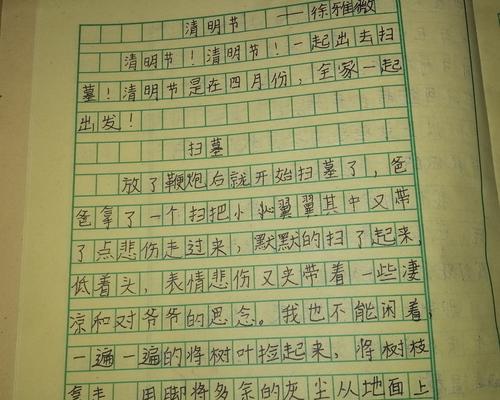 清明节 ——徐雅微
清明节！清明节！一起出去扫
墓！清明节是在四月份，全家一起
出发！
扫墓
放了鞭炮后就开始扫墓了，爸
爸拿了一个扫把小心翼翼其中又带
了点悲伤走过来，默默的扫了起来
低着头，表情悲伤又夹带着一些凄
凉和对爷爷的思念。我也不能闲着，
一遍一遍的将树叶捡起来，将树枝
拿走，用脚将多余的灰尘从地面上